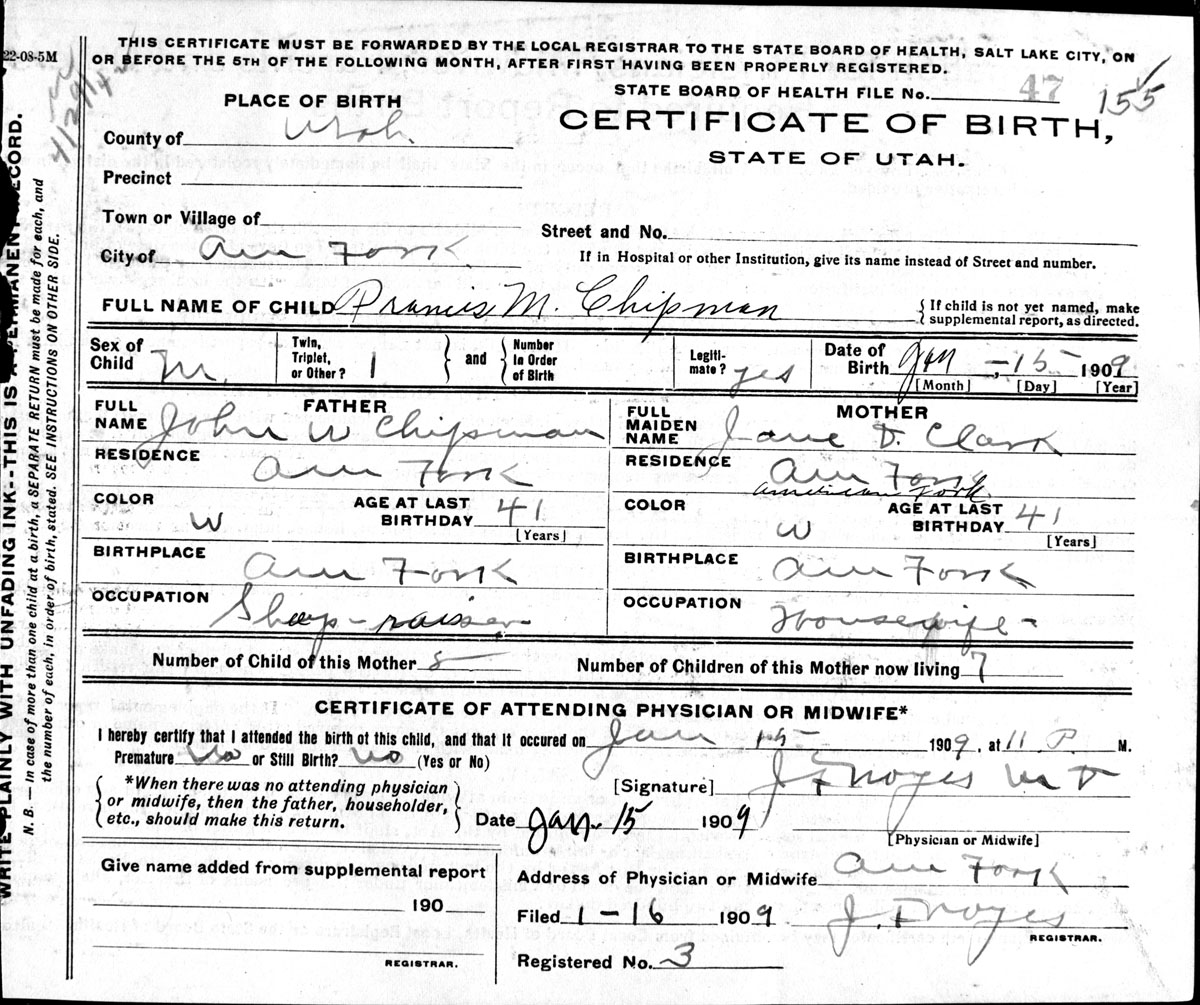 22-08-5M
THIS CERTIFICATE MUST BE FORWARDED BY THE LOCAL REGISTRAR TO THE STATE BOARD OF HEALTH, SALT LAKE CITY, ON
OR BEFORE THE 5TH OF THE FOLLOWING MONTH, AFTER FIRST HAVING BEEN PROPERLY REGISTERED.
STATE BOARD OF HEALTH FILE No. 47 155
PLACE OF BIRTH
CERTIFICATE OF BIRTH,
STATE OF UTAH.
County of Utah
Precinct
Town or Village of
Street and No.
City of Am Fork
If in Hospital or other Institution, give its name instead of Street and number.
FULL NAME OF CHILD Francis M. Chipman
{If child is not yet named, make
supplemental report, as directed.
Sex of Child M. Twin, Triplet, or Other? 1 } and { Number in Order of Birth Legiti-mate? yes Date of Birth Jan - 15 1909
[Month] [Day] [Year]
FATHER
FULL NAME John W Chipman
RESIDENCE Am Fork
COLOR W AGE AT LAST BIRTHDAY 41
[Years]
BIRTHPLACE Am Fork
OCCUPATION Sheep-raiser
MOTHER
FULL MAIDEN NAME Jane D. Clark
RESIDENCE Am Fork
American Fork
COLOR W AGE AT LAST BIRTHDAY 41
[Years]
BIRTHPLACE Am Fork
OCCUPATION Housewife-
Number of Child of this Mother 8 Number of Children of this Mother now living 7
CERTIFICATE OF ATTENDING PHYSICIAN OR MIDWIFE*
I hereby certify that I attended the birth of this child, and that it occured on Jan 15 1909, at 11 P M.
Premature No or Still Birth? No (Yes or No)
[Signature] J F Noyes M D
[Physician or Midwife]
{*When there was no attending physician
or midwife, then the father, householder,
etc., should make this return.}
Date Jan. 15 1909
Give name added from supplemental report
190
REGISTRAR.
Address of Physician or Midwife Am Fork
Filed 1-16 1909 J. F Noyes
REGISTRAR.
Registered No. 3
WRITE PLAINLY WITH UNFADING INK--THIS IS A PERMANENT RECORD.
N. B. — In case of more than one child at a birth, a SEPARATE RETURN must be made for each, and
the number of each, in order of birth, stated. SEE INSTRUCTIONS ON OTHER SIDE.